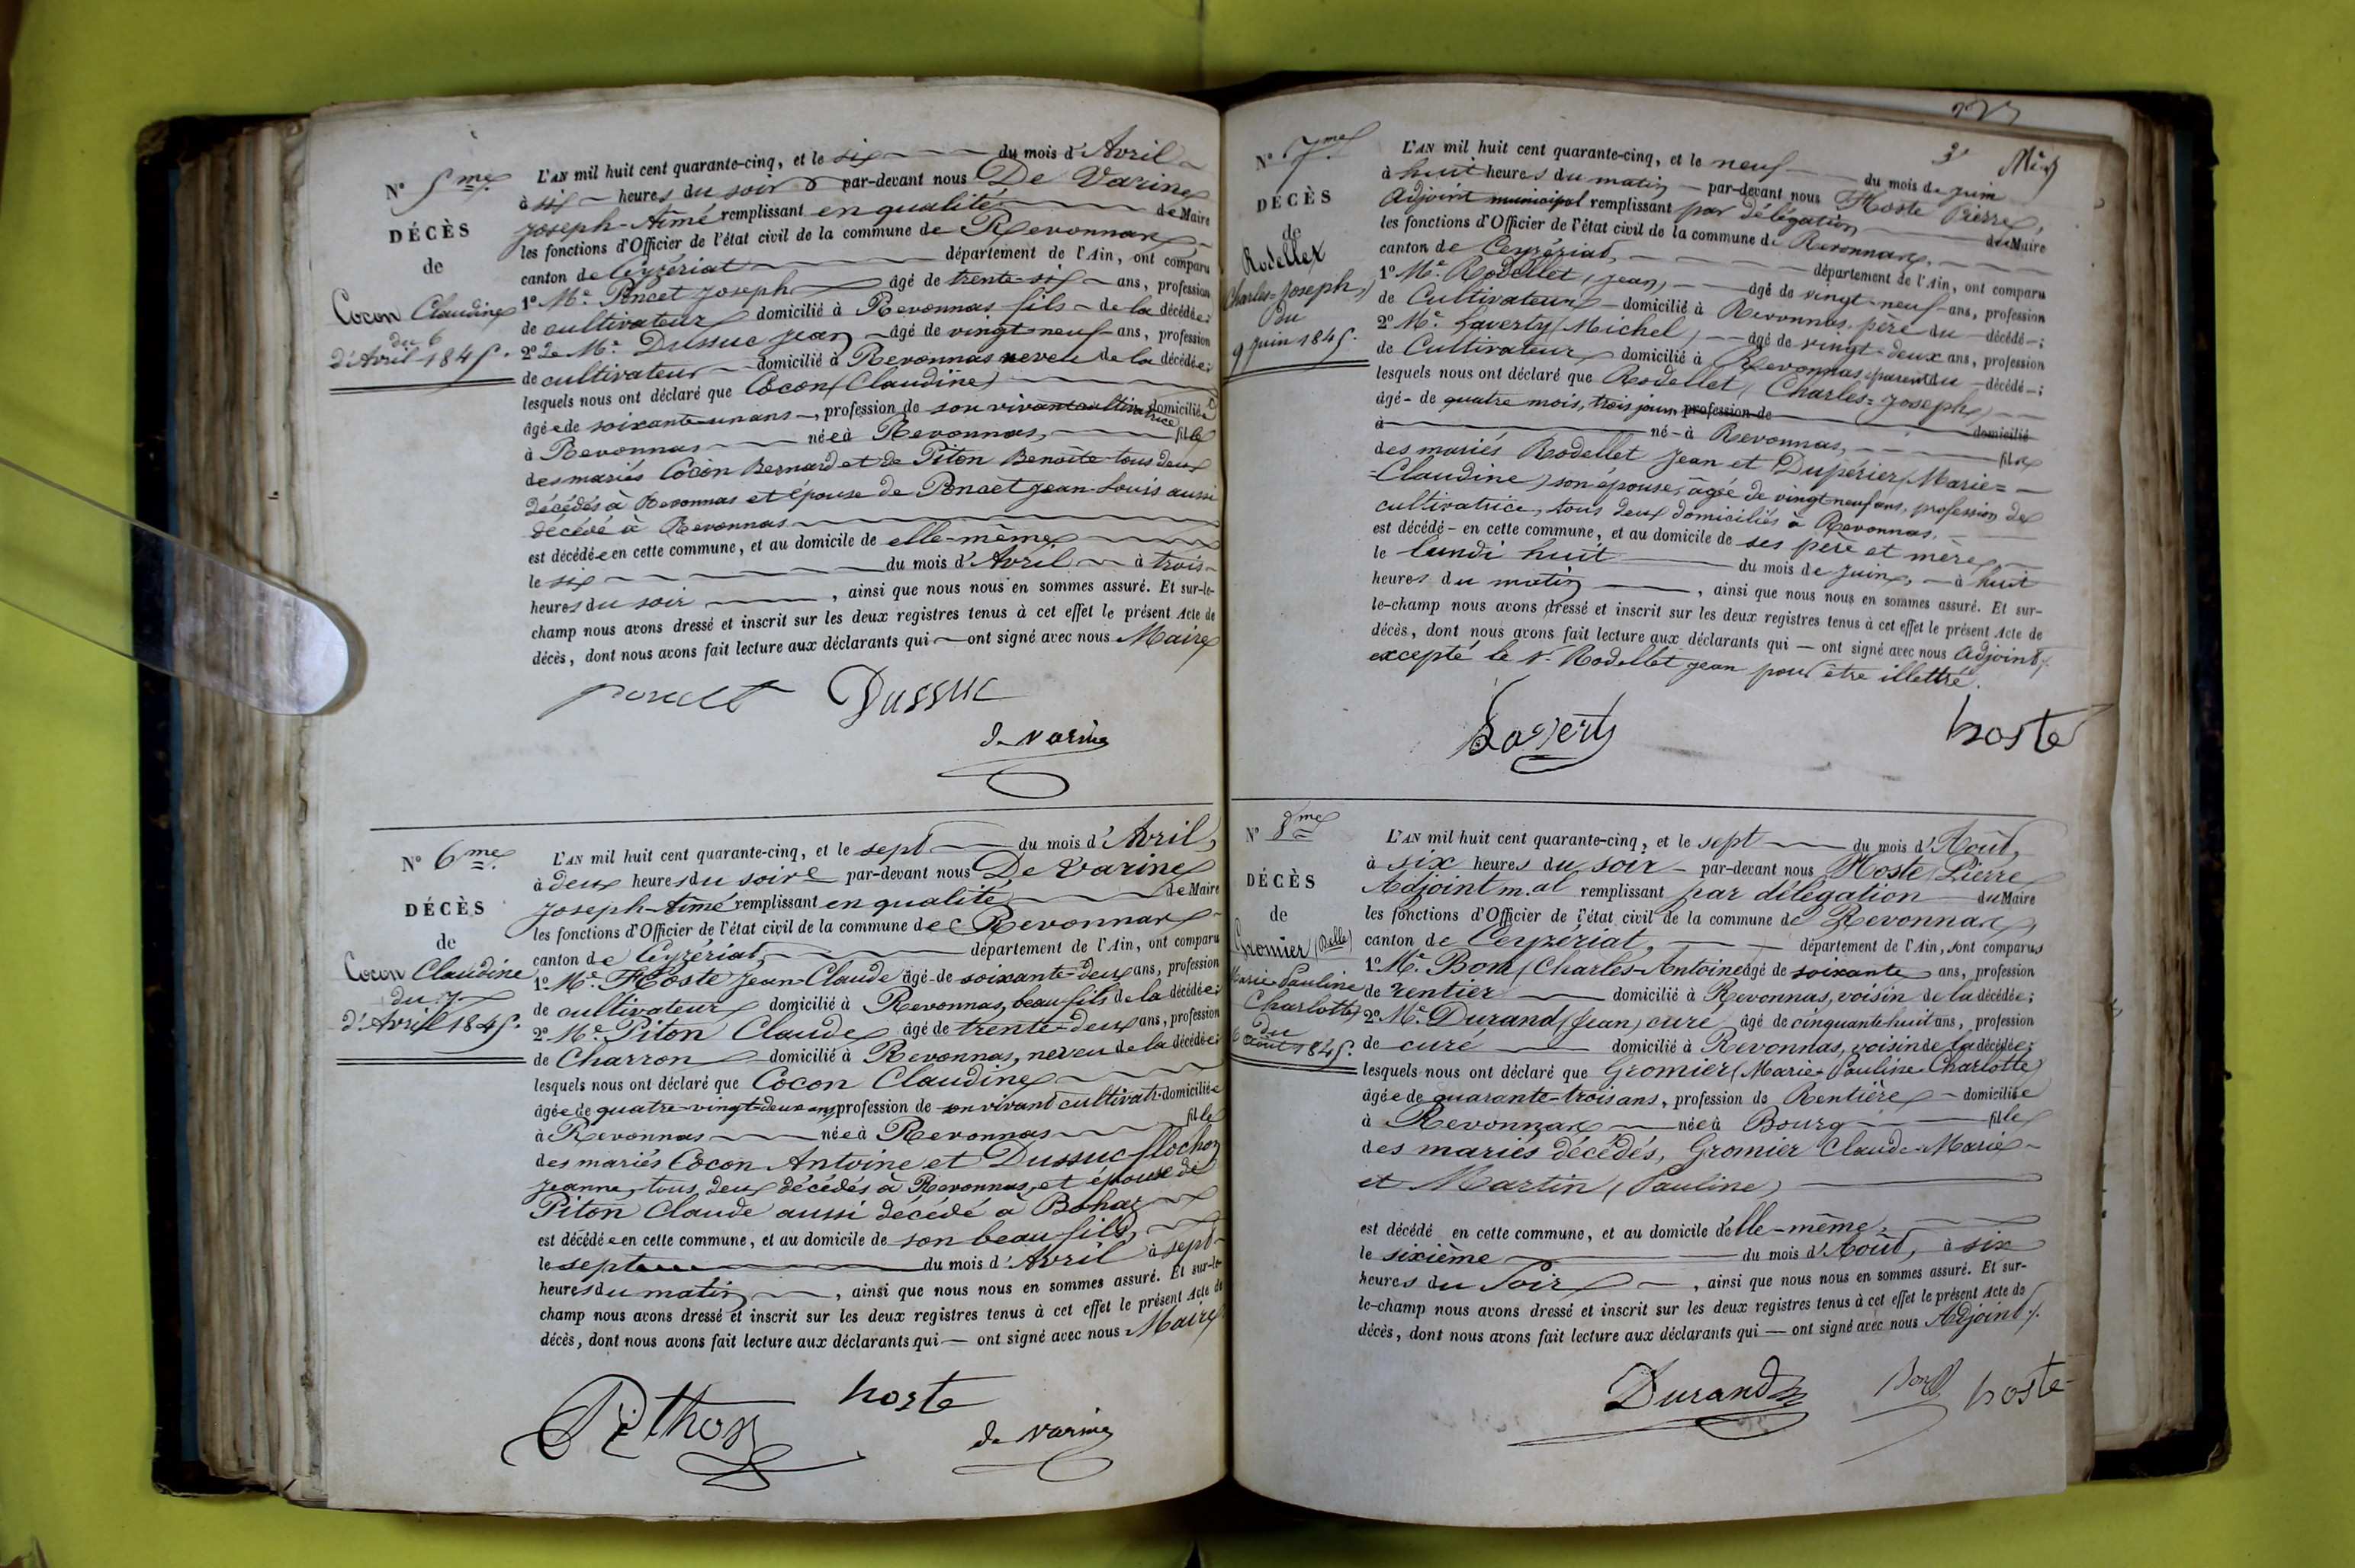 N° 5me
DÉCÈS
de
Cocon Claudine
du 6
d'Avril 1845.
L'AN mil huit cent quarante-cinq, et le six du mois d'Avril
à six heures du soir par-devant nous De Varine
Joseph-Aimé remplissant en qualité de Maire
les fonctions d'Officier de l'état civil de la commune de Revonnas
canton de Ceyzériat département de l'Ain, ont comparu
1° Me. Poncet Joseph âgé de trente-six ans, profession
de cultivateur domicilié à Revonnas fils de la décédée;
2° Le Me. Dussuc Jean âgé de vingt-neuf ans, profession
de cultivateur domicilié à Revonnas neveu de la décédée;
lesquels nous ont déclaré que Cocon (Claudine)
âgée de soixante-un ans, profession de son vivant cultivatrice domiciliée
à Revonnas née à Revonnas, fille
des mariés Cocon Bernard et de Piton Benoîte tous deux
décédés à Revonnas et épouse de Poncet Jean-Louis aussi
décédé à Revonnas
est décédée en cette commune, et au domicile de elle-même
le six du mois d'Avril à trois
heures du soir, ainsi que nous nous en sommes assuré. Et sur-le-
champ nous avons dressé et inscrit sur les deux registres tenus à cet effet le présent Acte de
décès, dont nous avons fait lecture aux déclarants qui — ont signé avec nous Maire
poncet Dussuc
de Varine
N° 6me
DÉCÈS
de
Cocon Claudine
du 7
d'Avril 1845.
L'AN mil huit cent quarante-cinq, et le sept du mois d'Avril,
à deux heures du soir par-devant nous De Varine
Joseph-Aimé remplissant en qualité de Maire
les fonctions d'Officier de l'état civil de la commune de Revonnas
canton de Ceyzériat, département de l'Ain, ont comparu
1° Me. Hoste Jean-Claude âgé de soixante-deux ans, profession
de cultivateur domicilié à Revonnas, beau fils de la décédée;
2° Me. Piton Claude âgé de trente-deux ans, profession
de Charron domicilié à Revonnas, neveu de la décédée;
lesquels nous ont déclaré que Cocon Claudine
âgée de quatre-vingt-deux ans, profession de son vivant cultivatr. domiciliée
à Revonnas née à Revonnas fille
des mariés Cocon Antoine et Dussuc-flochon
Jeanne, tous deux décédés à Revonnas, et épouse de
Piton Claude aussi decédé à Bohas
est décédée en cette commune, et au domicile de son beau fils,
le sept du mois d'Avril à sept
heures du matin, ainsi que nous nous en sommes assuré. Et sur-le-
champ nous avons dressé et inscrit sur les deux registres tenus à cet effet le présent Acte de
décès, dont nous avons fait lecture aux déclarants qui — ont signé avec nous Maire
Pithon hoste
de Varine
N° 7me
DÉCÈS
de
Rodellet
Charles-Joseph,
du
9 Juin 1845.
L'AN mil huit cent quarante-cinq, et le neuf du mois de juin
à huit heures du matin par-devant nous Hoste Pierre,
Adjoint municipal remplissant par délégation du Maire
les fonctions d'Officier de l'état civil de la commune de Revonnas,
canton de Ceyzériat, département de l'Ain, ont comparu
1° Me. Rodellet (Jean) âgé de vingt-neuf ans, profession
de Cultivateur domicilié à Revonnas, père du décédé;
2° Me. Laverty (Michel) âgé de vingt-deux ans, profession
de Cultivateur domicilié à Revonnas parent du décédé;
lesquels nous ont déclaré que Rodellet (Charles-Joseph)
âgé de quatre mois, trois jours profession de domicilié
à né à Revonnas, fils
des mariés Rodellet Jean et Dupérier (Marie-
-Claudine) son épouse, âgée de vingt-neuf ans, profession de
cultivatrice, tous deux domiciliés à Revonnas.
est décédé en cette commune, et au domicile de ses père et mère,
le lundi huit du mois de Juin, à huit
heures du matin, ainsi que nous nous en sommes assuré. Et sur-
le-champ nous avons dressé et inscrit sur les deux registres tenus à cet effet le présent Acte de
décès, dont nous avons fait lecture aux déclarants qui — ont signé avec nous Adjoint,
excepté le Sr. Rodellet Jean pour être illettré.
Laverty hoste
N° 8me
DÉCÈS
de
Gromier (Delle)
Marie-Pauline
Charlotte
du
6 août 1845.
L'AN mil huit cent quarante-cinq, et le sept du mois d'Août,
à six heures du soir par-devant nous Hoste Pierre
Adjoint m.al remplissant par délégation du Maire
les fonctions d'Officier de l'état civil de la commune de Revonnas,
canton de Ceyzériat, département de l'Ain, sont comparus
1° Me. Bon (Charles-Antoine âgé de soixante ans, profession
de rentier domicilié à Revonnas, voisin de la décédée;
2° Me. Durand (Jean) curé âgé de cinquante-huit ans, profession
de curé domicilié à Revonnas, voisin de la décédée;
lesquels nous ont déclaré que Gromier (Marie-Pauline-Charlotte)
âgée de quarante-trois ans, profession de Rentière domiciliée
à Revonnas née à Bourg fille
des mariés décédés, Gromier Claude-Marie
et Martin (Pauline)
est décédé en cette commune, et au domicile d'elle-même,
le sixième du mois d'Août, à six
heures du Soir, ainsi que nous nous en sommes assuré. Et sur-
le-champ nous avons dressé et inscrit sur les deux registres tenus à cet effet le présent Acte de
décès, dont nous avons fait lecture aux déclarants qui — ont signé avec nous Adjoint.
Durand Bon hoste